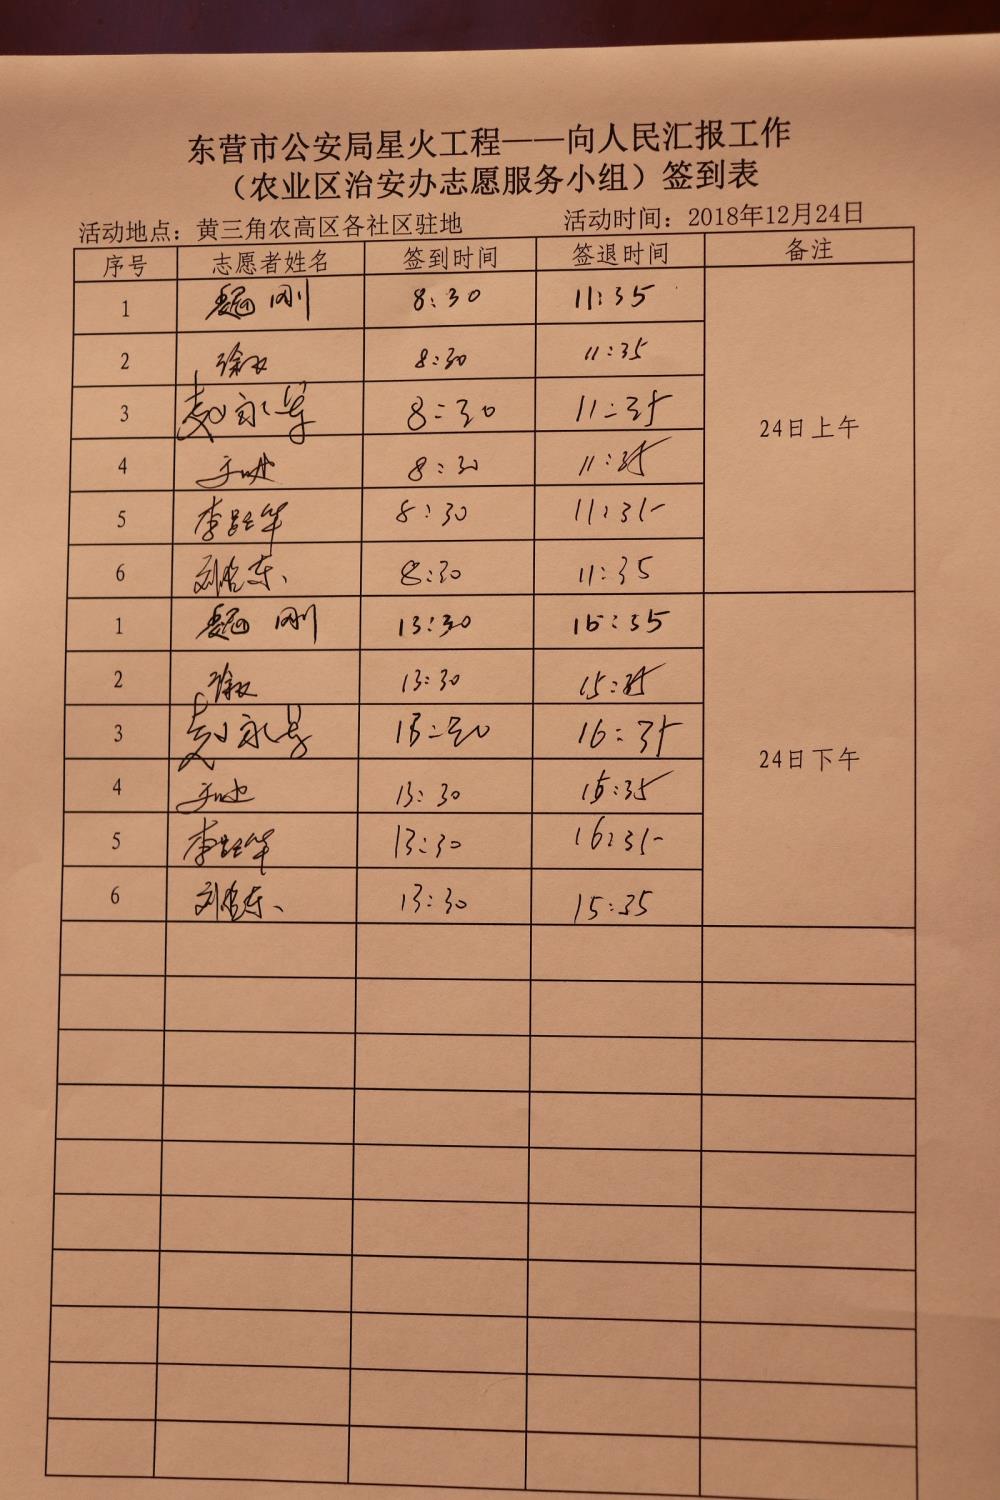 东营市公安局星火工程——向人民汇报工作
（农业区治安办志愿服务小组）签到表
活动地点：黄三角农高区各社区驻地 活动时间：2018年12月24日
序号 志愿者姓名 签到时间 签退时间 备注
1 魏刚 8:30 11:35
2 徐 8:30 11:35
3 赵永军 8:30 11:35
24日上午
4 8:30 11:35
5 李 华 8:30 11:35
6 刘 东 8:30 11:35
1 魏刚 13:30 16:35
2 徐 13:30 15:35
3 赵永军 13:30 16:35
24日下午
4 13:30 16:35
5 李 华 13:30 16:35
6 刘 东 13:30 15:35